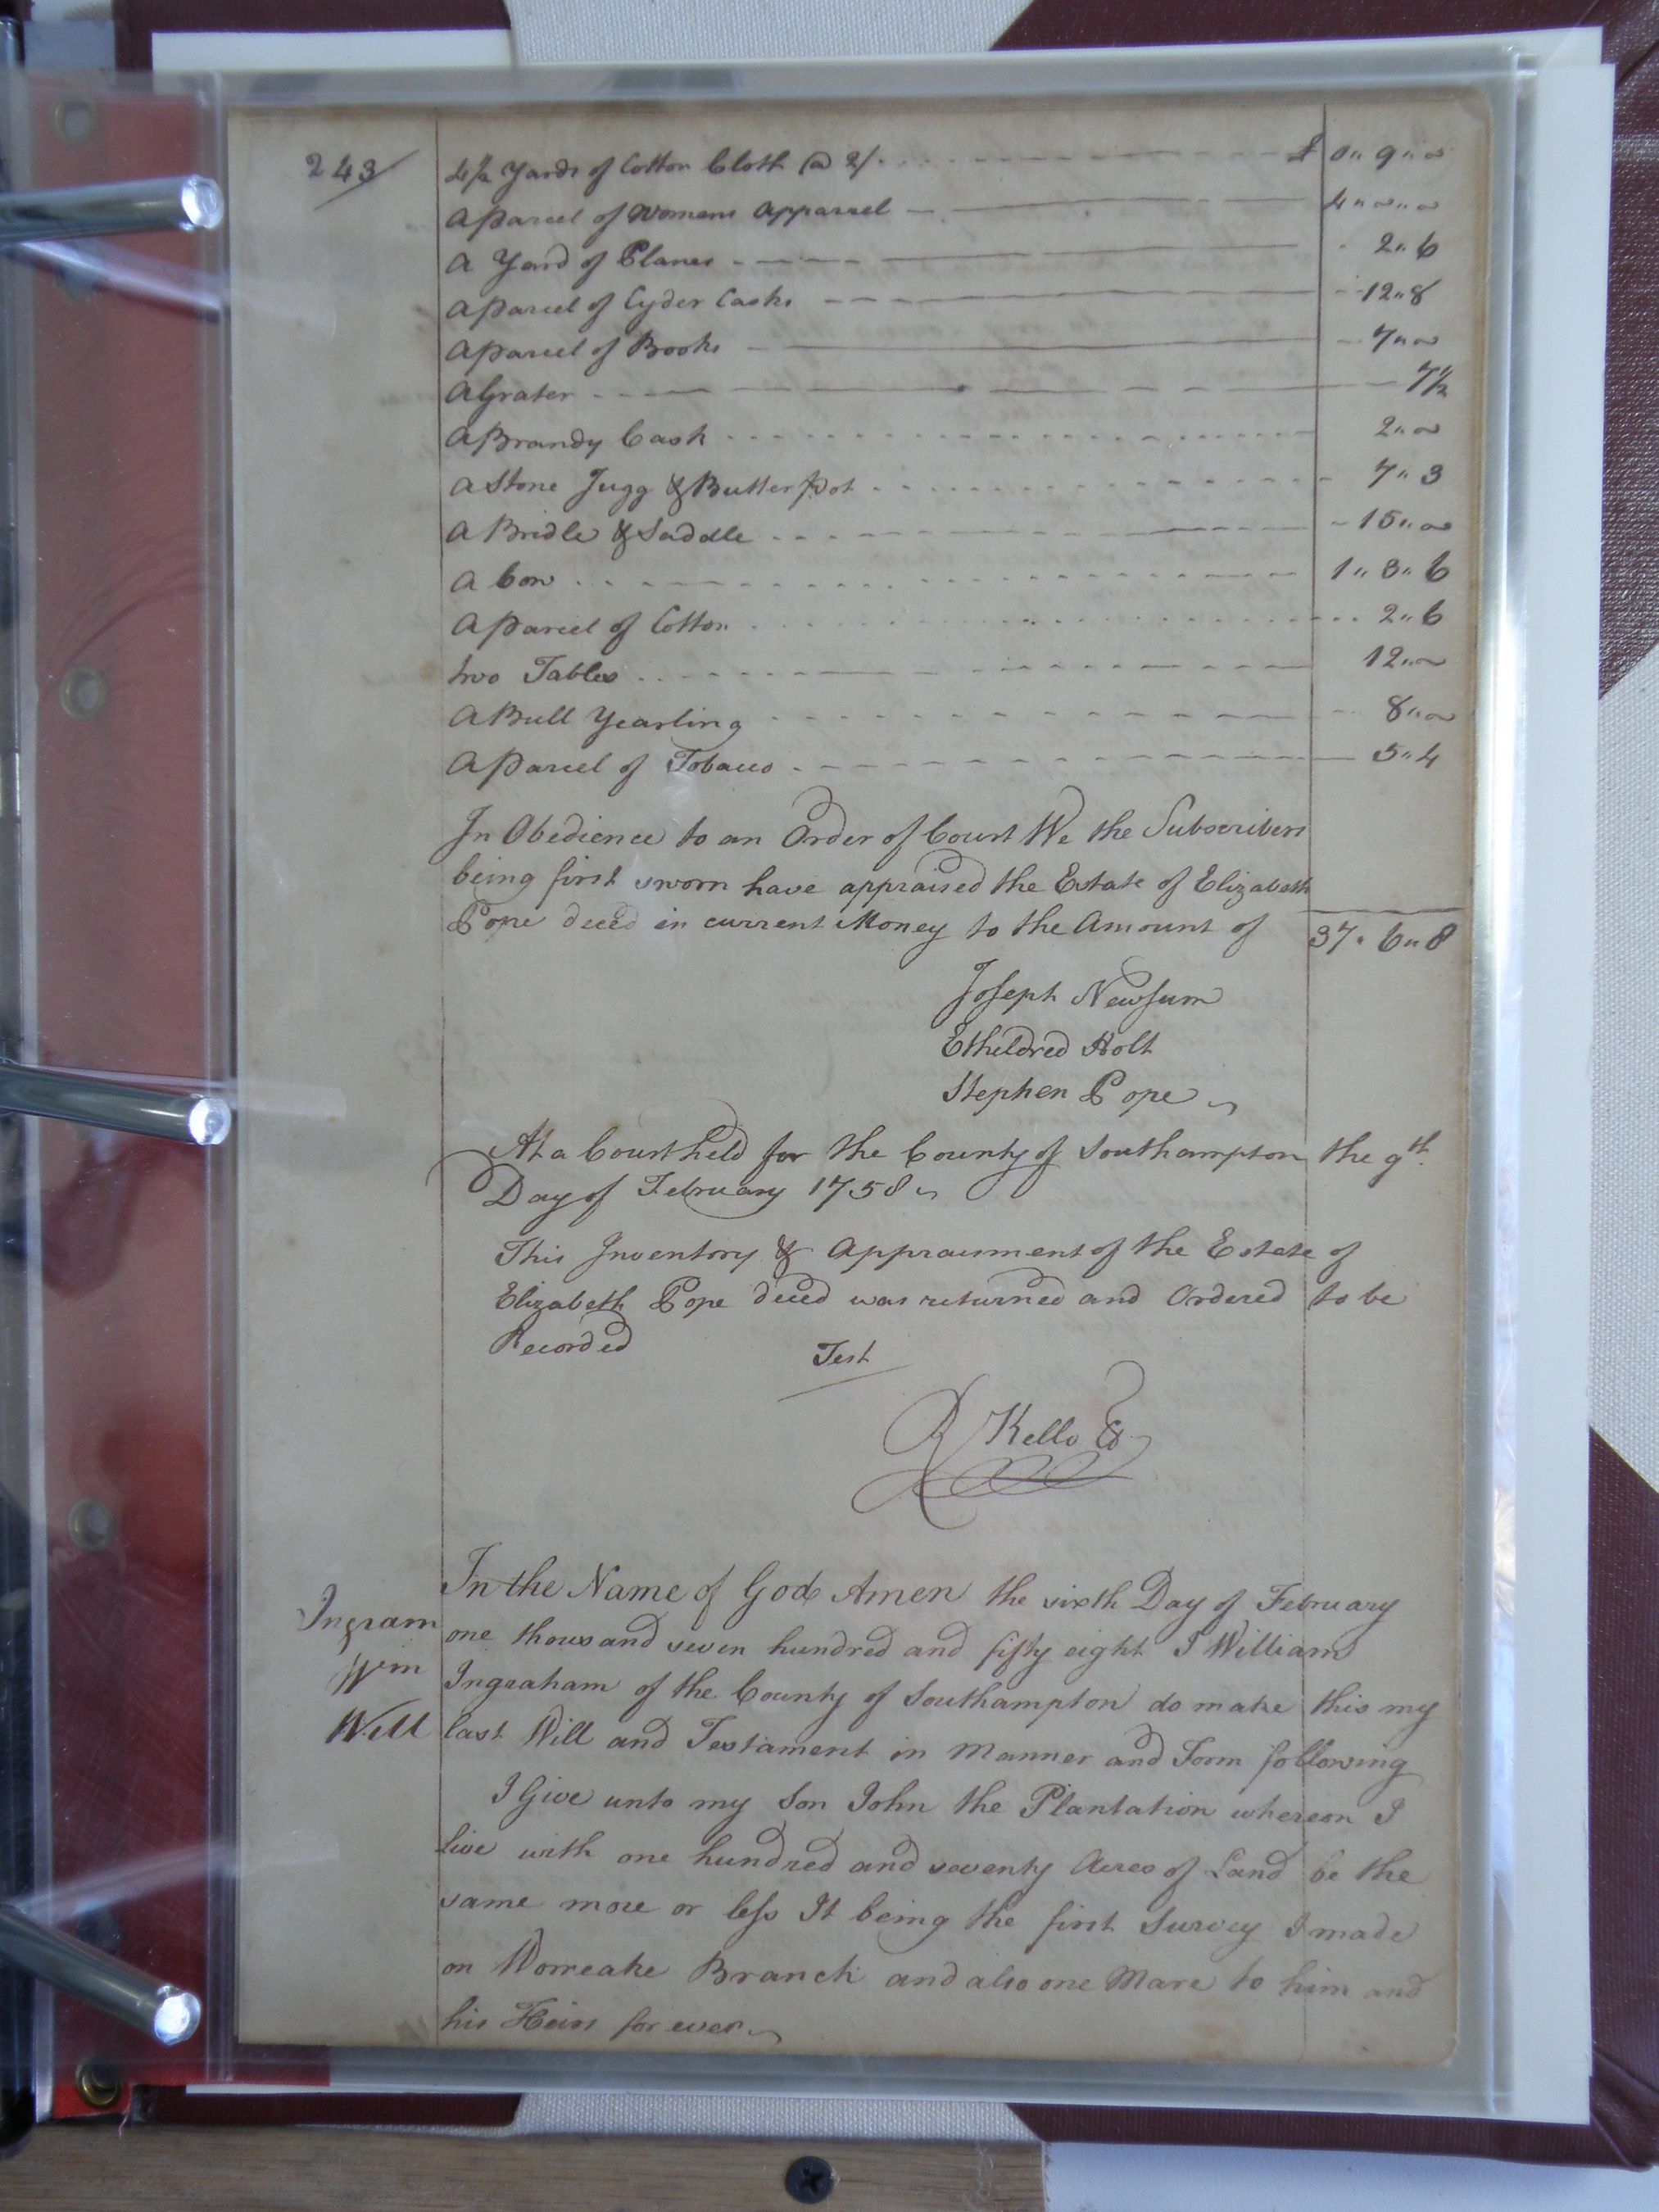 243
4½ Yards of Cotton Cloth @ 2/ £ 0"9"~
a Parcel of Womens Apparrel 4"~"~
a Yard of Planes 2"6
a Parcel of Cyder Casks 12"8
a Parcel of Books 7"~
a Grater 7½
a Brandy Cask 2"~
a Stone Jugg & Butter Pot 7"3
a Bridle & Saddle 15"~
a Cow 1"3"6
a Parcel of Cotton 2"6
two Tables 12"~
a Bull Yearling 8"~
a Parcel of Tobacco 5"4
In Obedience to an Order of Court We the Subscribers
being first sworn have appraised the Estate of Elizabeth
Pope decèd in current Money to the Amount of 37"6"8
Joseph Newsum
Etheldred Holt
Stephen Pope
At a Court held for the County of Southampton the 9th.
Day of February 1758
This Inventory & Appraisment of the Estate of
Elizabeth Pope decèd was returned and Ordered to be
Recorded
Test
R Kello
In the Name of God Amen the sixth Day of February
Ingram one thousand seven hundred and fifty eight I William
Wm Ingraham of the County of Southampton do make this my
Will last Will and Testament in Manner and Form following
I Give unto my Son John the Plantation whereon I
live with one hundred and seventy Acres of Land be the
same more or less It being the first Survey I made
on Branch and also one Mare to him and
his Heirs for ever